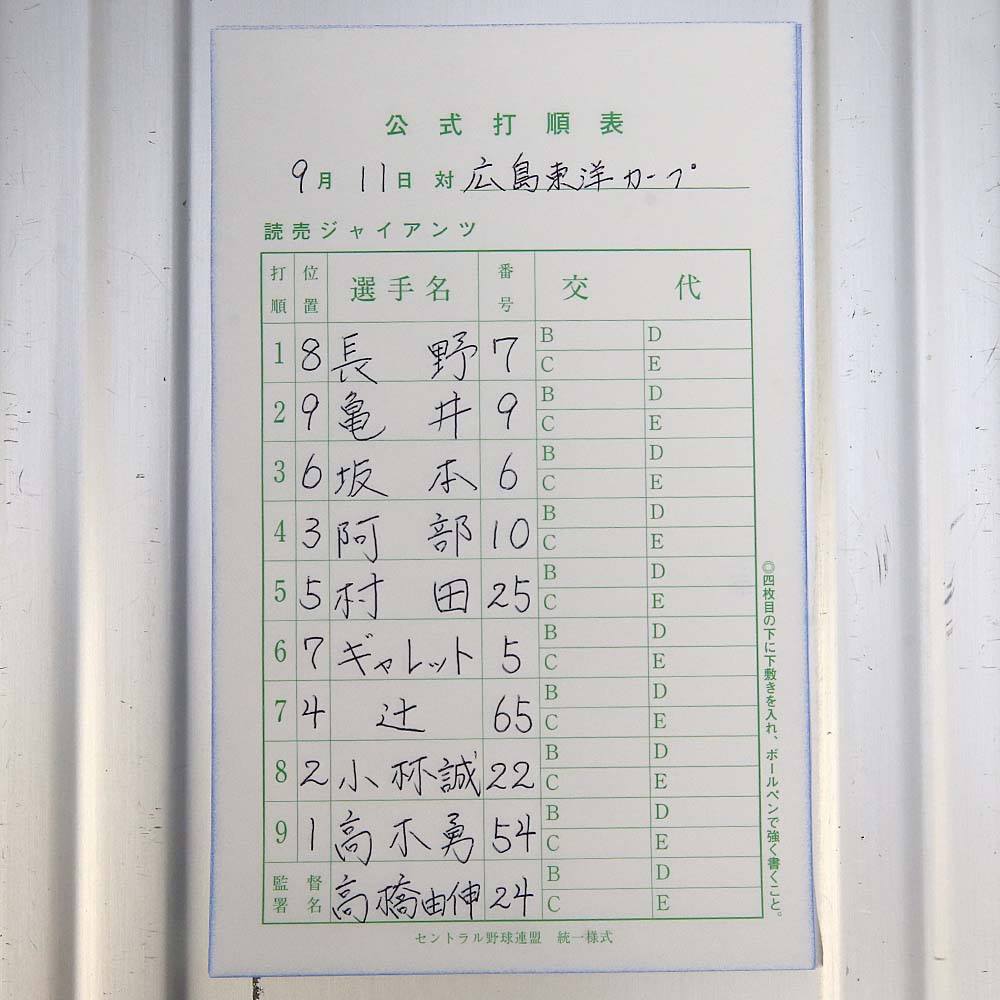 公式打順表
9月11日 対 広島東洋カープ
読売ジャイアンツ
打順 位置 選手名 番号 交代
1 8 長野 7 B D C E
2 9 亀井 9 B D C E
3 6 坂本 6 B D C E
4 3 阿部 10 B D C E
5 5 村田 25 B D C E
6 7 ギャレット 5 B D C E
7 4 辻 65 B D C E
8 2 小林誠 22 B D C E
9 1 高木勇 54 B D C E
監督署名 高橋由伸 24 B D C E
◎四枚目の下に下敷きを入れ、ボールペンで強く書くこと。
セントラル野球連盟 統一様式